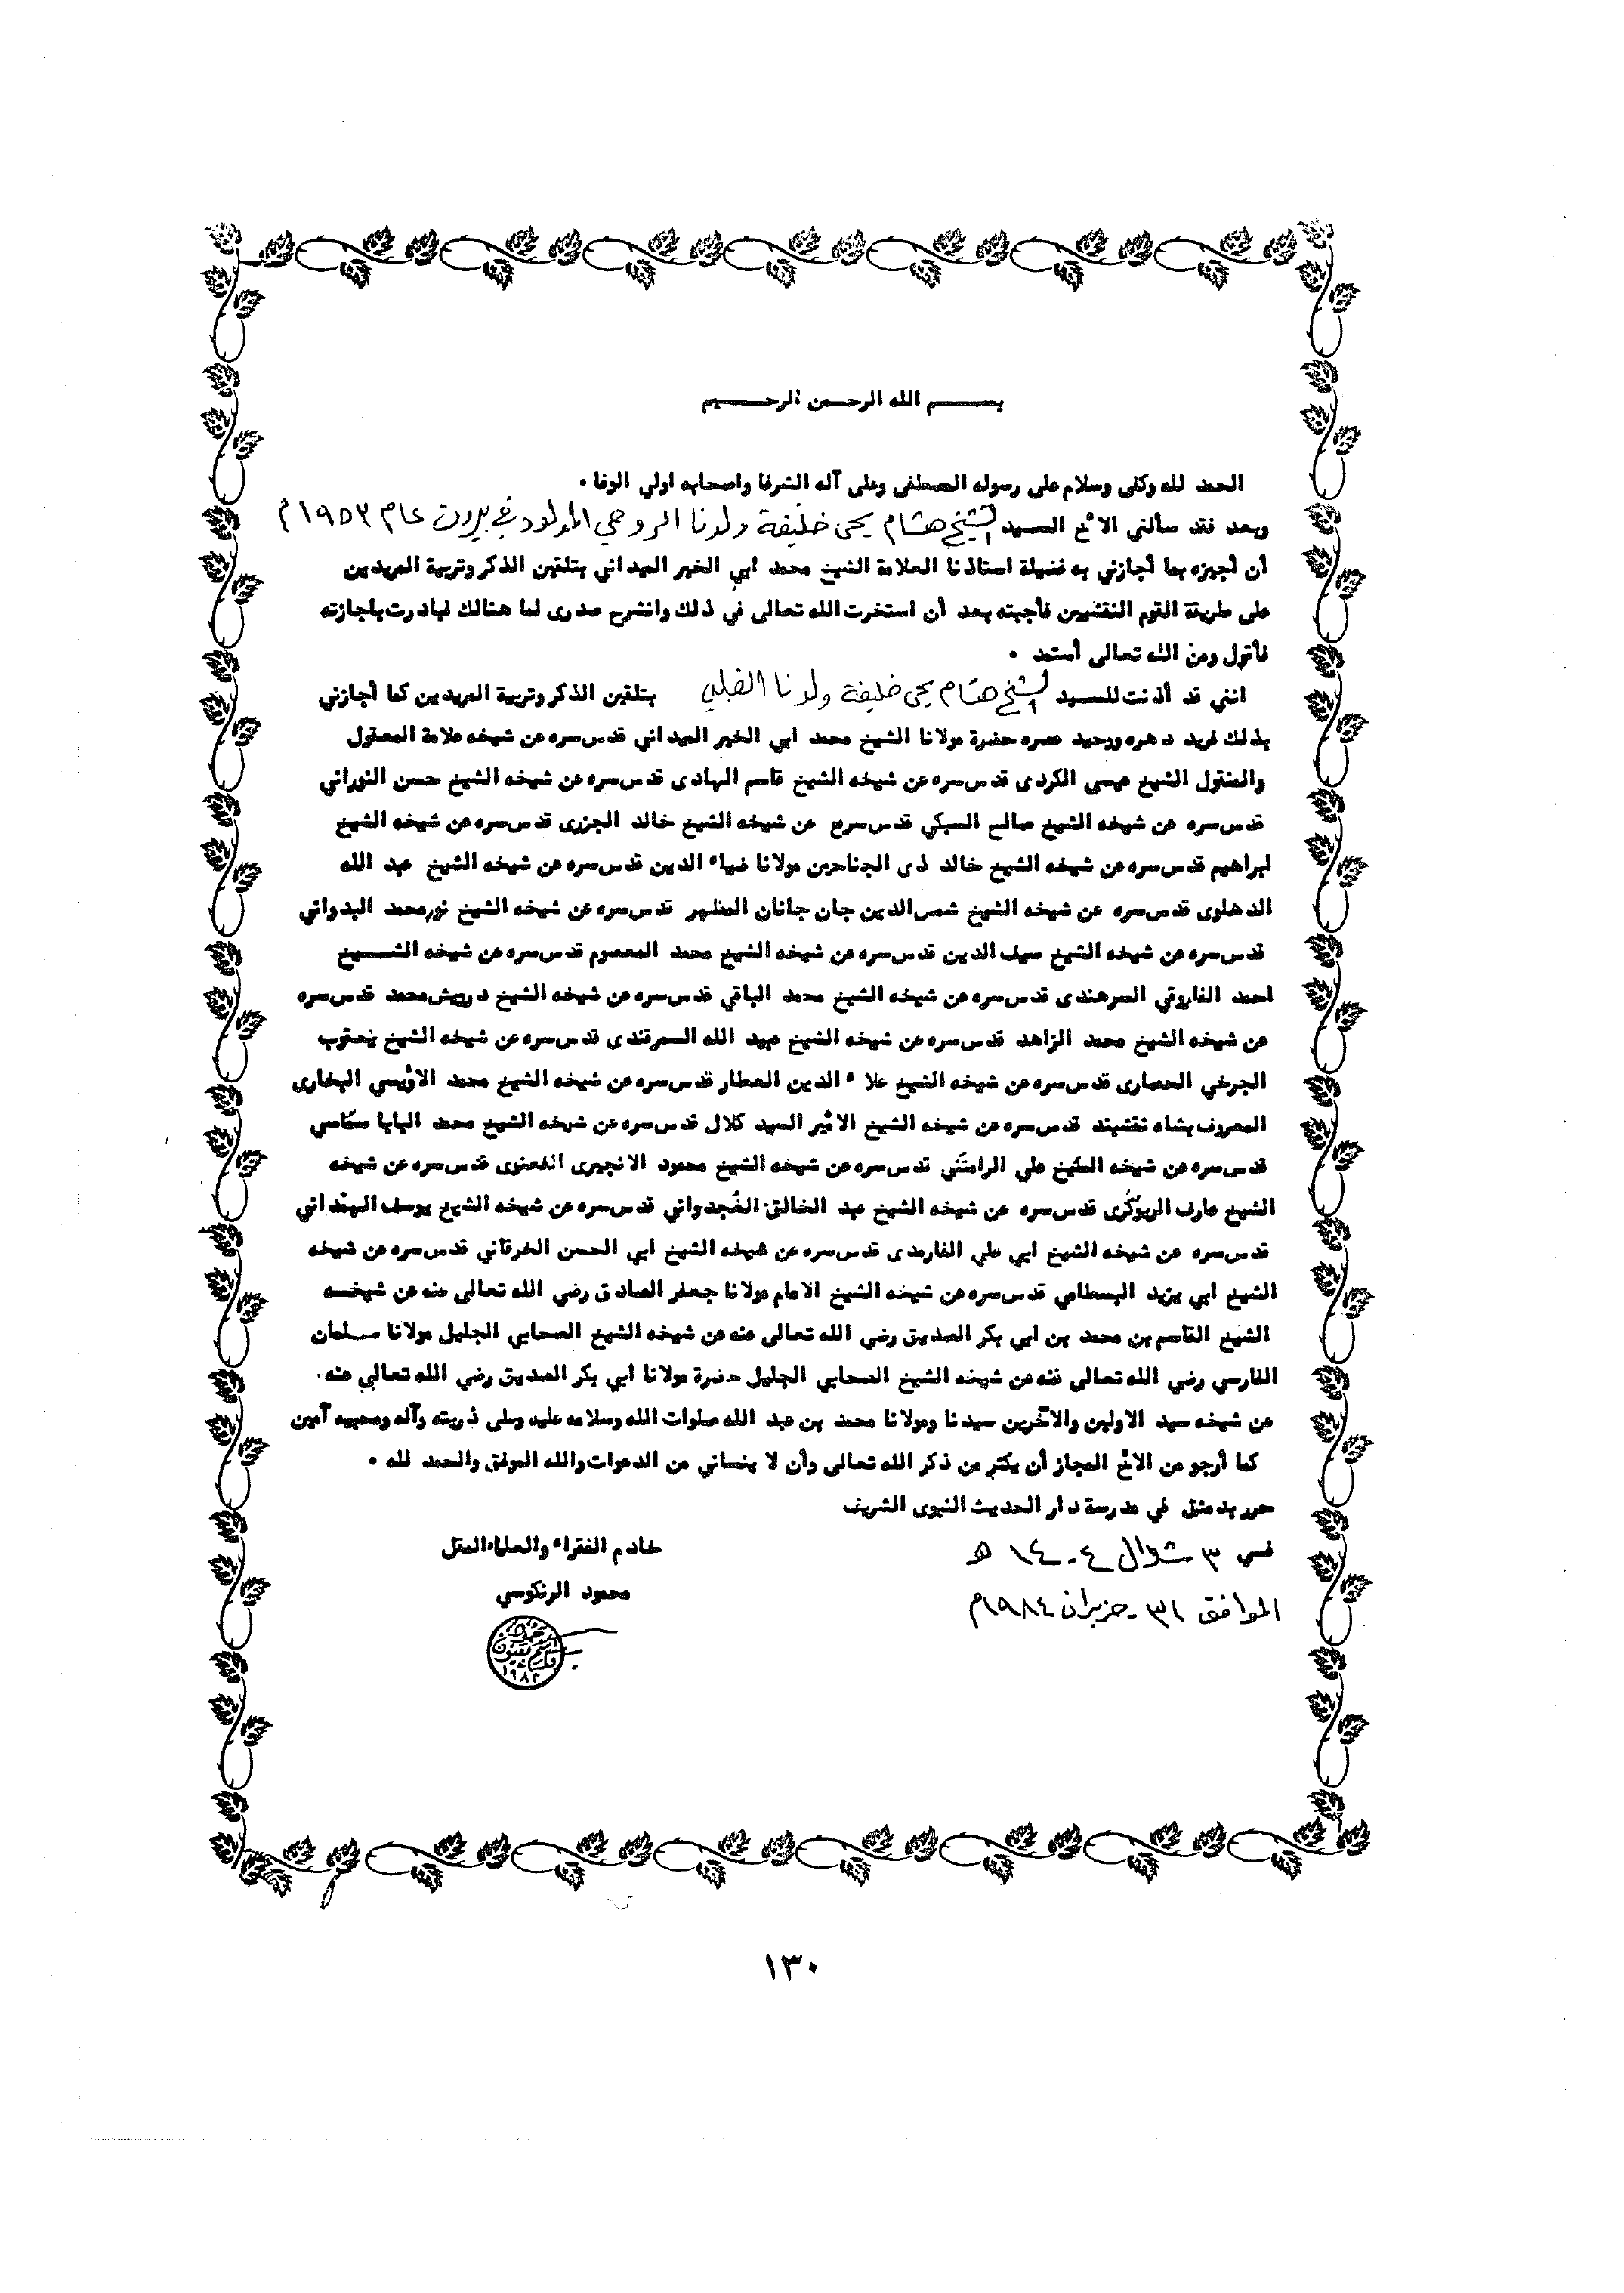 بسم الله الرحمن الرحيم
الحمد لله وكفى وسلام على رسوله المصطفى وعلى آله الشرفا واصحابه اولي الوفا .
وبعد فقد سألني الأخ السيد الشيخ هشام يحى خليفة ولدنا الروحي المولود في بيروت عام ١٩٥٣م
أن أجيزه بما أجازني به فضيلة استاذنا العلامة الشيخ محمد ابي الخير الميداني بتلقين الذكر وتربية المريدين
على طريقة القوم النقشبيين فأجبته بعد أن استخرت الله تعالى في ذلك وانشرح صدرى لما هنالك لبادرت باجازته
فأقول ومن الله تعالى أستمد .
انني قد أذنت للسيد الشيخ هشام يحى خليفة ولدنا القلبي بتلقين الذكر وتربية المريدين كما أجازني
بذلك فريد دهره ووحيد عصره حضرة مولانا الشيخ محمد ابي الخير الميداني قدس سره عن شيخه علامة المعقول
والمنقول الشيخ عيسى الكردى قدس سره عن شيخه الشيخ قاسم الهادى قدس سره عن شيخه الشيخ حسن النوراني
قدس سره عن شيخه الشيخ صالح السبكي قدس سره عن شيخه الشيخ خالد الجزرى قدس سره عن شيخه الشيخ
ابراهيم قدس سره عن شيخه الشيخ خالد ذى الجناحين مولانا ضياء الدين قدس سره عن شيخه الشيخ عبد الله
الدهلوى قدس سره عن شيخه الشيخ شمس الدين جان جانان المظهر قدس سره عن شيخه الشيخ نور محمد البدواني
قدس سره عن شيخه الشيخ سيف الدين قدس سره عن شيخه الشيخ محمد المعصوم قدس سره عن شيخه الشيخ
احمد الفاروقي السرهندى قدس سره عن شيخه الشيخ محمد الباقي قدس سره عن شيخه الشيخ درويش محمد قدس سره
عن شيخه الشيخ محمد الزاهد قدس سره عن شيخه الشيخ عبيد الله السمرقندى قدس سره عن شيخه الشيخ يعقوب
الجرخي الحصارى قدس سره عن شيخه الشيخ علاء الدين العطار قدس سره عن شيخه الشيخ محمد الأويسي البخارى
المعروف بشاه نقشبند قدس سره عن شيخه الشيخ الأمير السيد كلال قدس سره عن شيخه الشيخ محمد البابا سماسي
قدس سره عن شيخه الشيخ علي الرامتني قدس سره عن شيخه الشيخ محمود الانجيرى الفغنوى قدس سره عن شيخه
الشيخ عارف الريوكرى قدس سره عن شيخه الشيخ عبد الخالق الغجدواني قدس سره عن شيخه الشيخ يوسف الهمداني
قدس سره عن شيخه الشيخ ابي علي الفارمدى قدس سره عن شيخه الشيخ ابي الحسن الخرقاني قدس سره عن شيخه
الشيخ ابي يزيد البسطامي قدس سره عن شيخه الشيخ الامام مولانا جعفر الصادق رضي الله تعالى عنه عن شيخه
الشيخ القاسم بن محمد بن ابي بكر الصديق رضي الله تعالى عنه عن شيخه الشيخ الصحابي الجليل مولانا سلمان
الفارسي رضي الله تعالى عنه عن شيخه الشيخ الصحابي الجليل حضرة مولانا ابي بكر الصديق رضي الله تعالى عنه .
عن شيخه سيد الاولين والآخرين سيدنا ومولانا محمد بن عبد الله صلوات الله وسلامه عليه وعلى ذريته وآله وصحبه آمين
كما أرجو من الأخ المجاز أن يكثر من ذكر الله تعالى وأن لا ينساني من الدعوات والله الموفق والحمد لله .
حرر بدمشق في مدرسة دار الحديث النبوى الشريف
في ٣ شوال ١٤٠٤ هـ
الموافق ٣١ - حزيران ١٩٨٤م
خادم الفقراء والعلماء المقل
محمود الرنكوسي
١٣٠